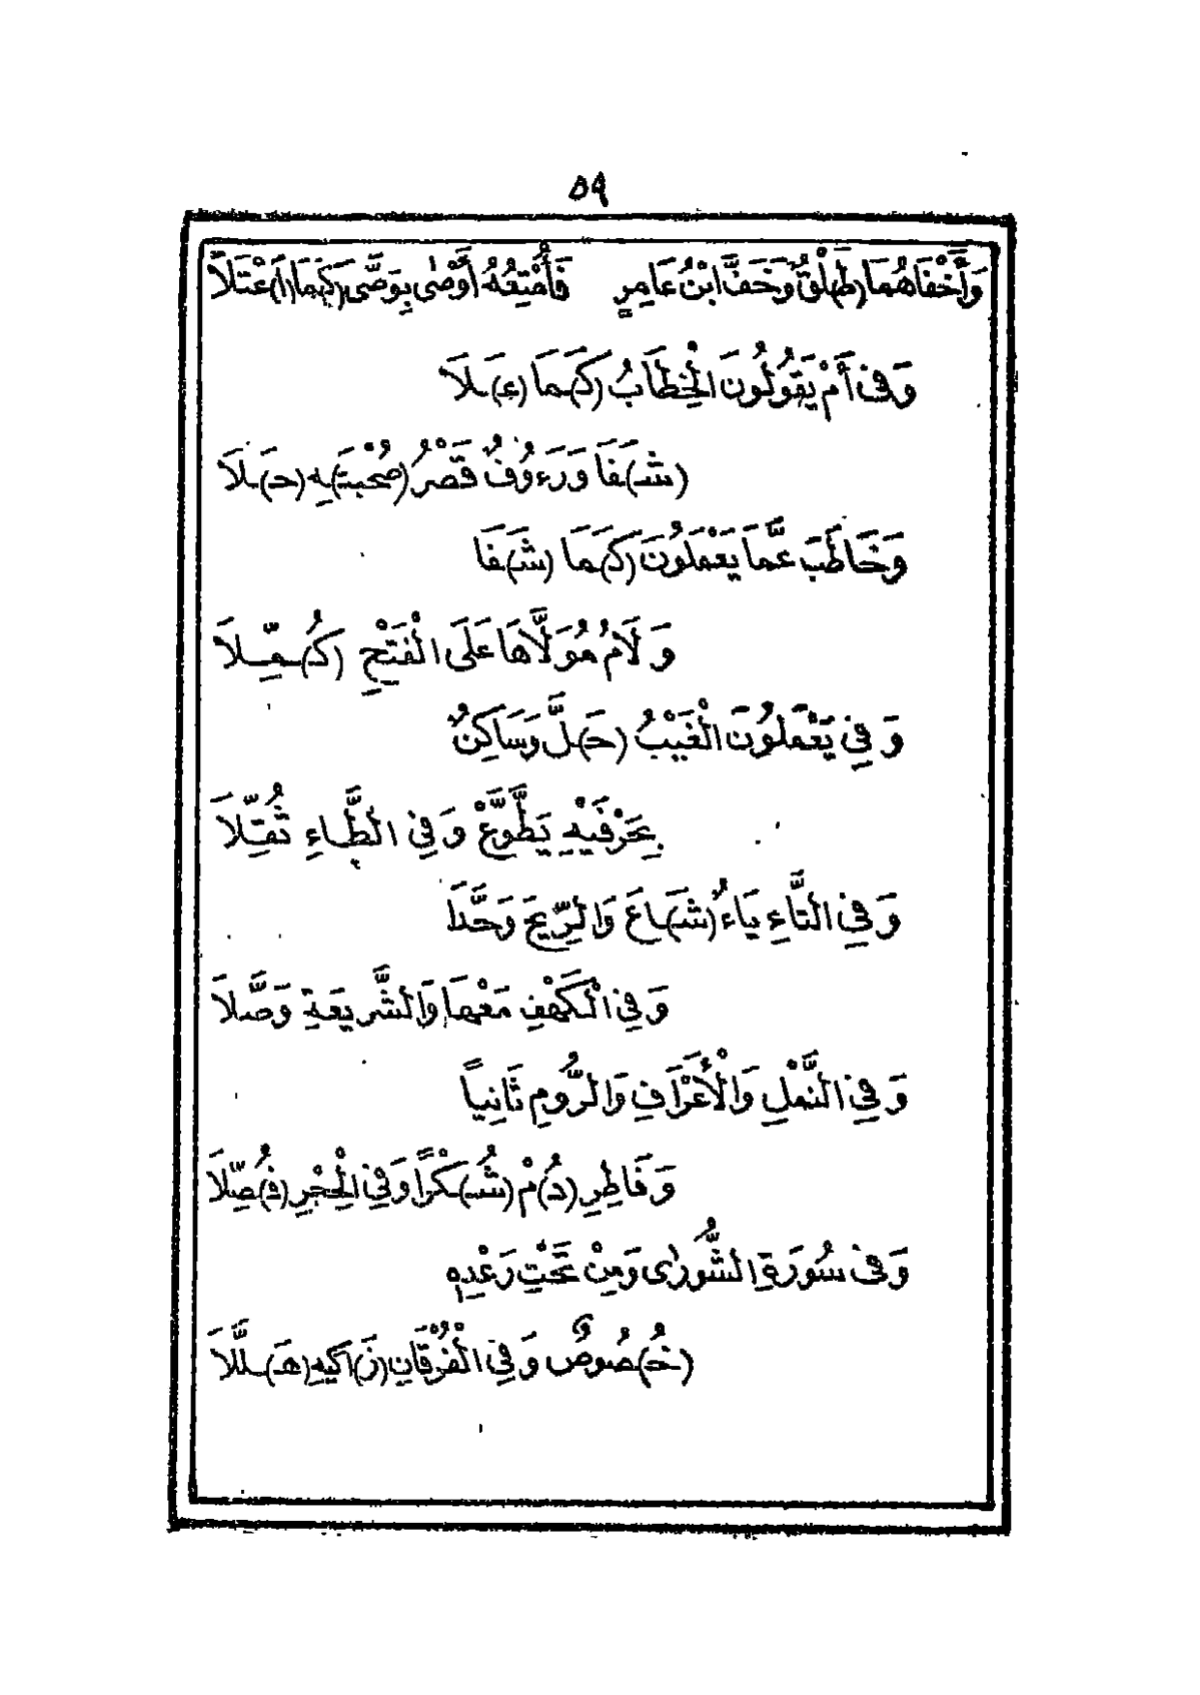 ٥٩
وَأَخْفَاهُمَا (طَـ)ـلْقٌ وَخَفُّ ابْنُ عَامِرٍ فَأُمْتِعُهُ أَوْصَى بِوَصَّى (كَـ)ـمَا (ا)عْتَلَا
وَفِي أَمْ يَقُولُونَ الْخِطَابُ (كَـ)ـمَا (عَـ)ـلَا
(شَـ)ـفَا وَرَءُوفٌ قَصْرُ (صُحْبَتِـ)ـهِ (حَـ)ـلَا
وَخَاطَبَ عَمَّا يَعْمَلُونَ (كَـ)ـمَا (شَـ)ـفَا
وَلَامُ مُوَلَّاهَا عَلَى الْفَتْحِ (كُـ)ـمِّـلَا
وَفِي يَعْمَلُونَ الْغَيْبُ (حَـ)ـلَّ وَسَاكِنٌ
بِحَرْفَيْهِ يَطَّوَّعْ وَفِي الطَّاءِ ثُقِّلَا
وَفِي التَّاءِ يَاءٌ (شَـ)ـاعَ وَالرِّيحَ وَحَّدَا
وَفِي الْكَهْفِ مَعْهَا وَالشَّرِيعَةِ وَصَّلَا
وَفِي النَّمْلِ وَالْأَعْرَافِ وَالرُّومِ ثَانِيًا
وَفَاطِرِ (دُ)مْ (شُـ)ـكْرًا وَفِي الْحِجْرِ (فُـ)ـصِّلَا
وَفِي سُورَةِ الشُّورَى وَمِنْ تَحْتِ رَعْدِهِ
(خُـ)ـصُوصٌ وَفِي الْفُرْقَانِ (زَ)اكِيهِ (هَـ)ـلَّلَا